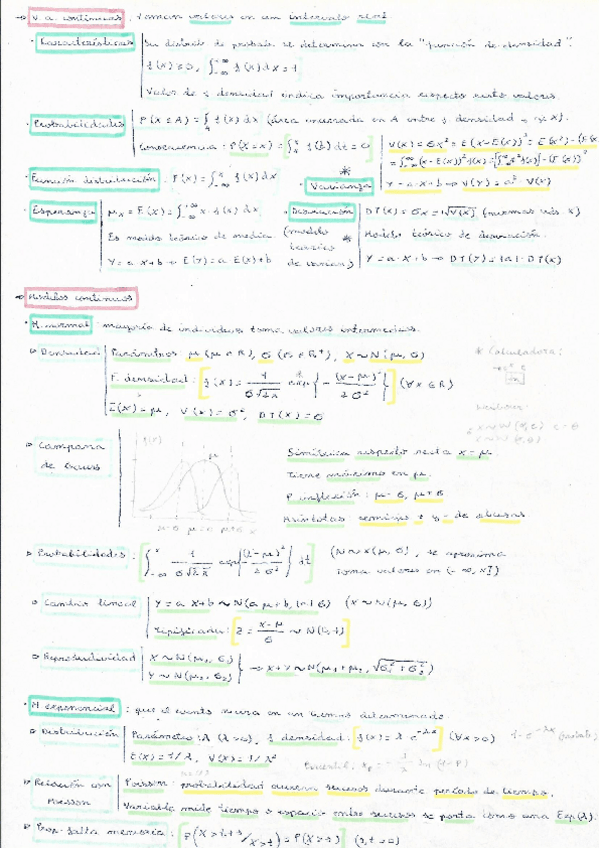 → V.a. continuas: toman valores en un intervalo real
· Características | Su distrib. de probab. se determina con la "función de densidad".
f(x) ≥ 0, ∫_{-∞}^{+∞} f(x) dx = 1
Valor de f densidad indica importancia respecto resto valores.
· Probabilidades | P(X ∈ A) = ∫_A f(x) dx (área encerrada en A entre f densidad y eje X).
Consecuencia: P(X=x) = [∫_x^x f(t) dt = 0]
V(X) = σx² = E(X-E(X))² = E(X²) - (E(X))²
= ∫_{-∞}^{+∞} (x-E(x))² f(x)
· Función distribución: F(x) = ∫_{-∞}^x f(x) dx
* · Varianza
Y = a·X+b → V(Y) = a²·V(X)
· Esperanza | μx = E(X) = ∫_{-∞}^{+∞} x·f(x) dx
Es modelo teórico de media.
Y = a·X+b → E(Y) = a E(X)+b
· Desviación (modelo teórico de varian.) * | DT(X) = σx = √V(X) (mismas uds. X)
Modelo teórico de desviación.
Y = a·X+b → DT(Y) = |a|·DT(X)
→ Modelos continuos
· M. normal: mayoría de individuos toma valores intermedios.
▷ Densidad | Parámetros μ (μ ∈ R), σ (σ ∈ R⁺), X ~ N(μ, σ)
* Calculadora:
F. densidad: [f(x) = 1/(σ√2π) exp{-(x-μ)²/2σ²}] (∀x ∈ R)
E(X) = μ, V(X) = σ², DT(X) = σ
▷ Campana de Gauss
f(x)
μ
μ-σ μ=0 μ+σ x
Simétrica respecto recta x=μ
Tiene máximo en μ.
P. inflexión: μ-σ, μ+σ
Asíntotas
▷ Probabilidades: [∫_{-∞}^x 1/(σ√2π) exp{-(t-μ)²/2σ²} dt] (X~N(μ, σ), se aproxima
toma valores en (-∞, x])
▷ Cambio lineal | Y = a·X+b ~ N(aμ+b, |a|σ) (X~N(μ, σ))
Tipificados: [Z = (X-μ)/σ ~ N(0,1)]
▷ Reproductividad | X ~ N(μ₁, σ₁)
Y ~ N(μ₂, σ₂) } → X+Y ~ N(μ₁+μ₂, √σ₁²+σ₂²)
· M. exponencial: que el evento ocurra en un tiempo determinado.
▷ Distribución | Parámetro: λ (λ>0), f densidad: [f(x) = λ·e^{-λx}] (∀x>0) 1-e^{-λx}
E(X) = 1/λ, V(X) = 1/λ²
Percentil: xp = -1/λ ln(1-P)
▷ Relación con Poisson | Poisson: probabilidad ocurran sucesos durante período de tiempo.
Variable mide tiempo o espacio entre sucesos se porta como una Exp(λ).
▷ Prop. falta memoria: P(X>t+s / X>t) = P(X>s)] (s,t>0)